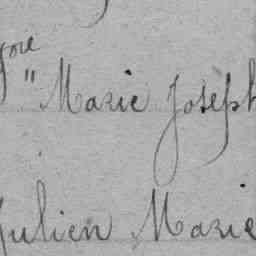 " Marie Joseph
Julien Marie